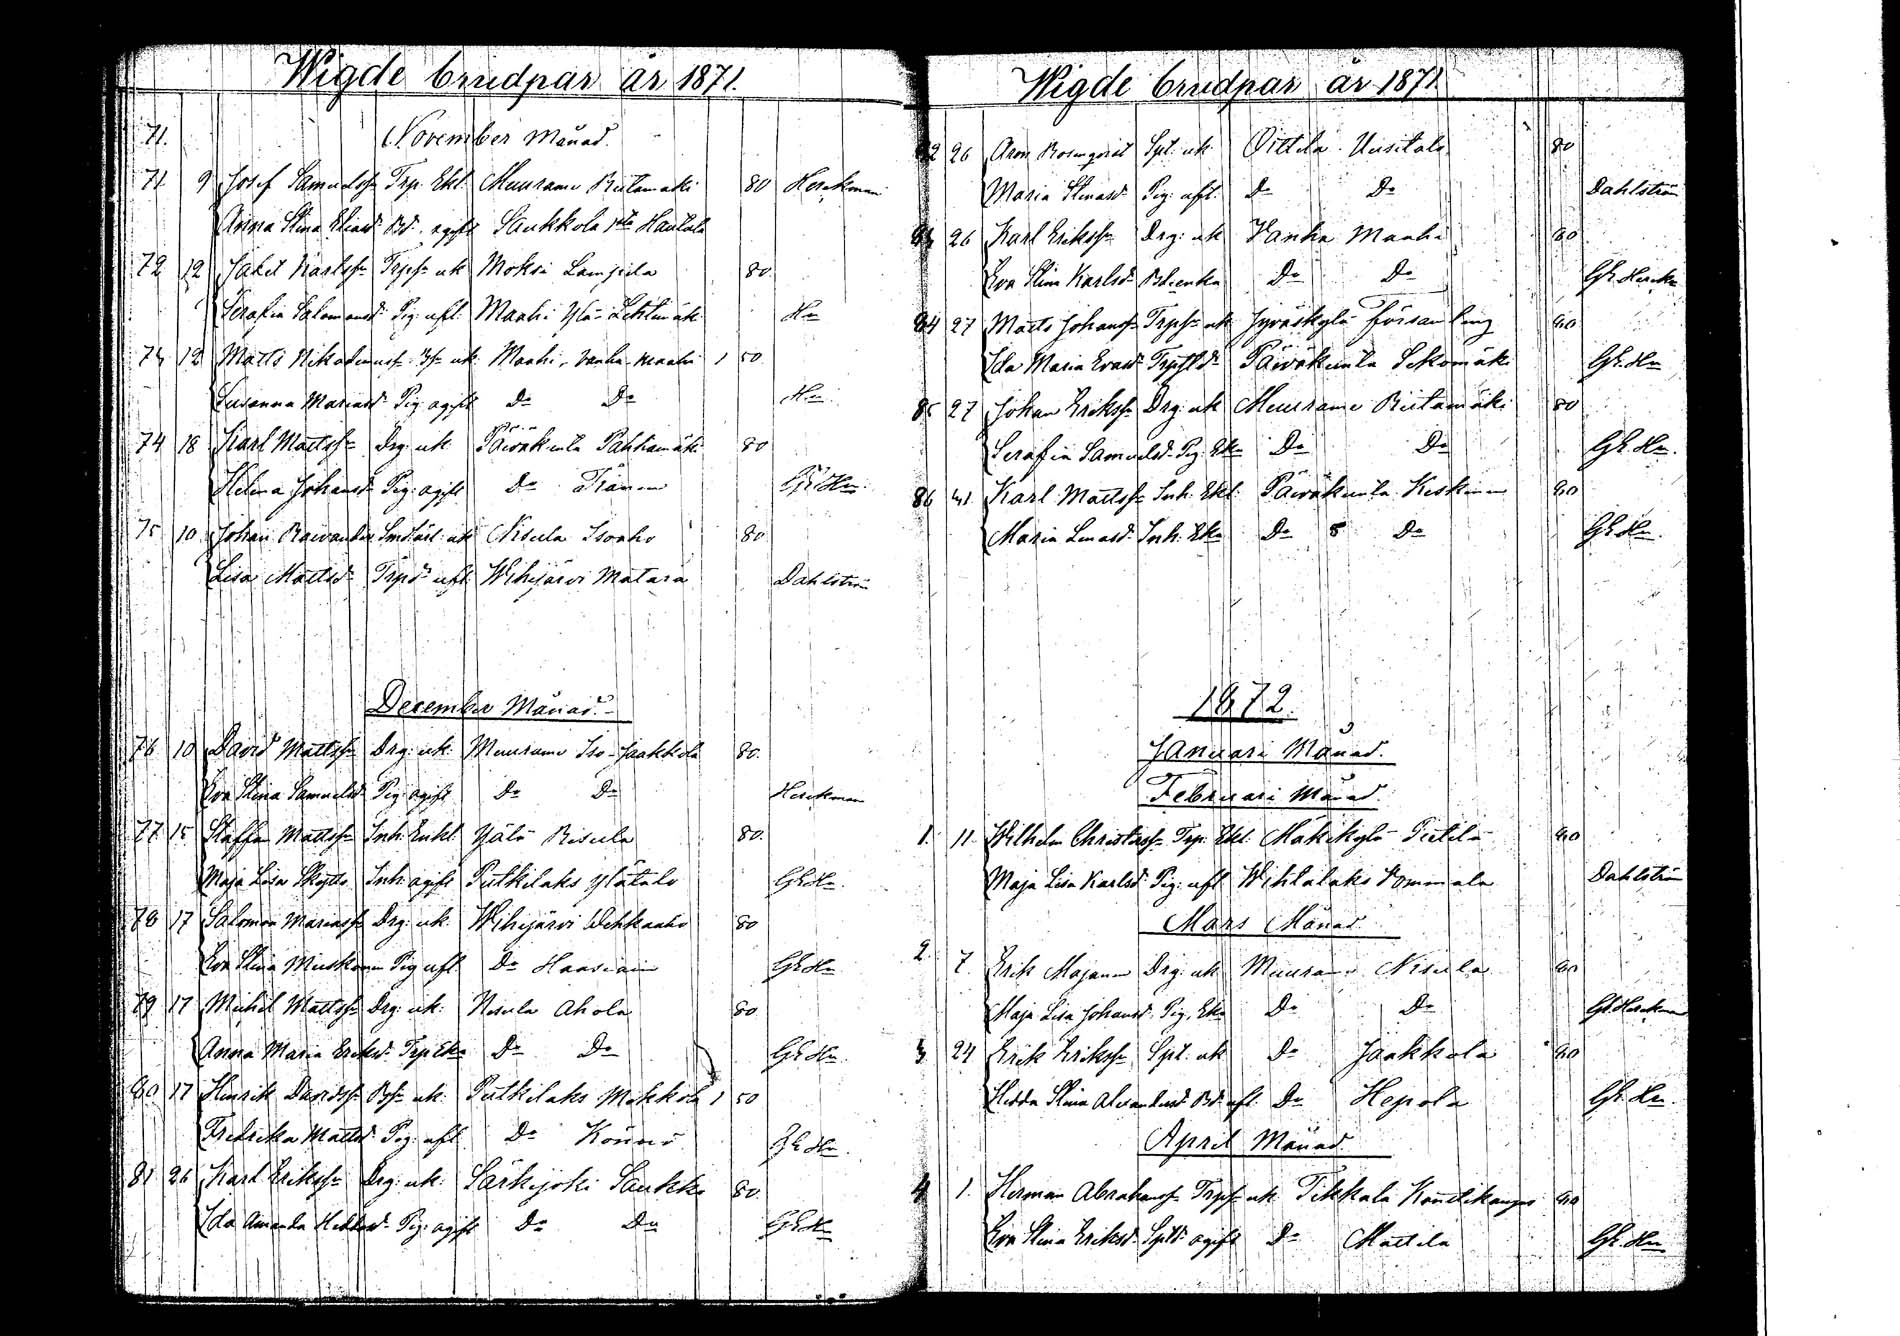 Wigde brudpar år 1871.
71. November Månad.
71 9 Josef Samuelss Trp. Ekl. Muurame Riitamäki 80 Herckman
Anna Stina Eliasd Bd. ogift Saukkola Hautala
72 12 Karlss Trps uk Moksi Lampila 80
Serafia Salomonsd Pig: ofl. Maahi Ylä- Lehtimäki Hn
73 12 Matts Nikodemuss Bs uk Maahi, Vanha-maahi 1 50
Susanna Mariasd Pig ogift Do Do Hn
74 18 Karl Mattss Drg: uk. Päiväkunta Pahkamäki 80
Helena Johansd Pig: ogift Do GE Hn.
75 10 Johan uk Nisula Isoaho 80
Lisa Mattsd Trpd ofl. Wihijärvi Matara Dahlström
December Månad.
76 10 David Mattss Drg: uk. Muurame Iso-Jaakkola 80.
Eva Stina Samuelsd Pig: ogift Do Do Herckman
77 15 Staffan Mattss Inh: Enkl. Ylä Risula 80.
Maja Lisa Skyttä Inh: ogift Putkilaks Ylätalo GE Hn.
78 17 Salomon Mariass Drg: uk. Wihijärvi Wehkaaho 80
Eva Stina Pig ofl. Do GE Hn
79 17 Michel Mattss Drg: uk. Nisula Ahola 80
Anna Maria Eriksd Trp Eka Do Do GE Hn.
80 17 Henrik Davidss Bs uk. Putkilaks Mokkola 1 50
Fredrika Mattsd Pig. ofl. Do Könnö GE Hn.
81 26 Karl Erikss Drg: uk. Särkijoki Saukko 80.
Ida Amanda Heddasd Pig: ogift Do Do GE Hn
Wigde brudpar år 1871
82 26 Aron Rosenqvist Spt. uk. Oittila Uusitalo 80
Maria Stinasd Pig: ofl. Do Do Dahlström
83 26 Karl Erikss Drg: uk Vanha Maahi 80
Eva Stina Karlsd Bdenka Do Do GE Herckn
84 27 Matts Johanss Trps uk Jyväskylä församling 80
Ida Maria Evasd Päiväkunta Sikomäki GE. Hn
85 27 Johan Erikss Drg: uk Muurame Riitamäki 80
Serafia Samuelsd Pig: Eka Do Do GE Hn.
86 31 Karl Mattss Inh: Ekl: Päiväkunta Keskinen 80
Maria Lenasd Inh: Eka Do Do GE Hn.
1872.
Januari Månad.
Februari Månad.
1. 11. Wilhelm Christerss Trp: Ekl. Mäkikylä Piitilä 80
Maja Lisa Karlsd Pig: ofl Wihtalaks Vommala Dahlström
Mars Månad.
2. 7. Erik Majanen Drg: uk Muurame Nisula 80
Maja Lisa Johansd Pig. Eka Do Do GE Herckman
3 24 Erik Erikss Spt. uk Do Jaakkola 80
Hedda Stina Alexandersd Bd ofl Do Hepola GE. Hn.
April Månad.
4 1. Herman Abrahamss Trps uk Tikkala Konttikangas 80
Eva Stina Eriksd Sptd ogift Do Mattila GE. Hn